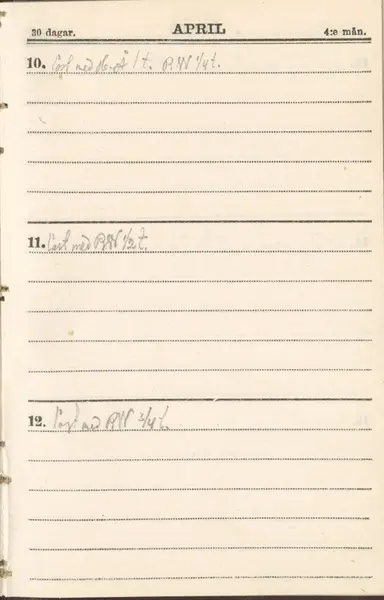 30 dagar. APRIL 4:e mån.
10. med 1 t. RW 1/4 t.
11. med RW 1/2 t.
12. med RW 3/4 t.